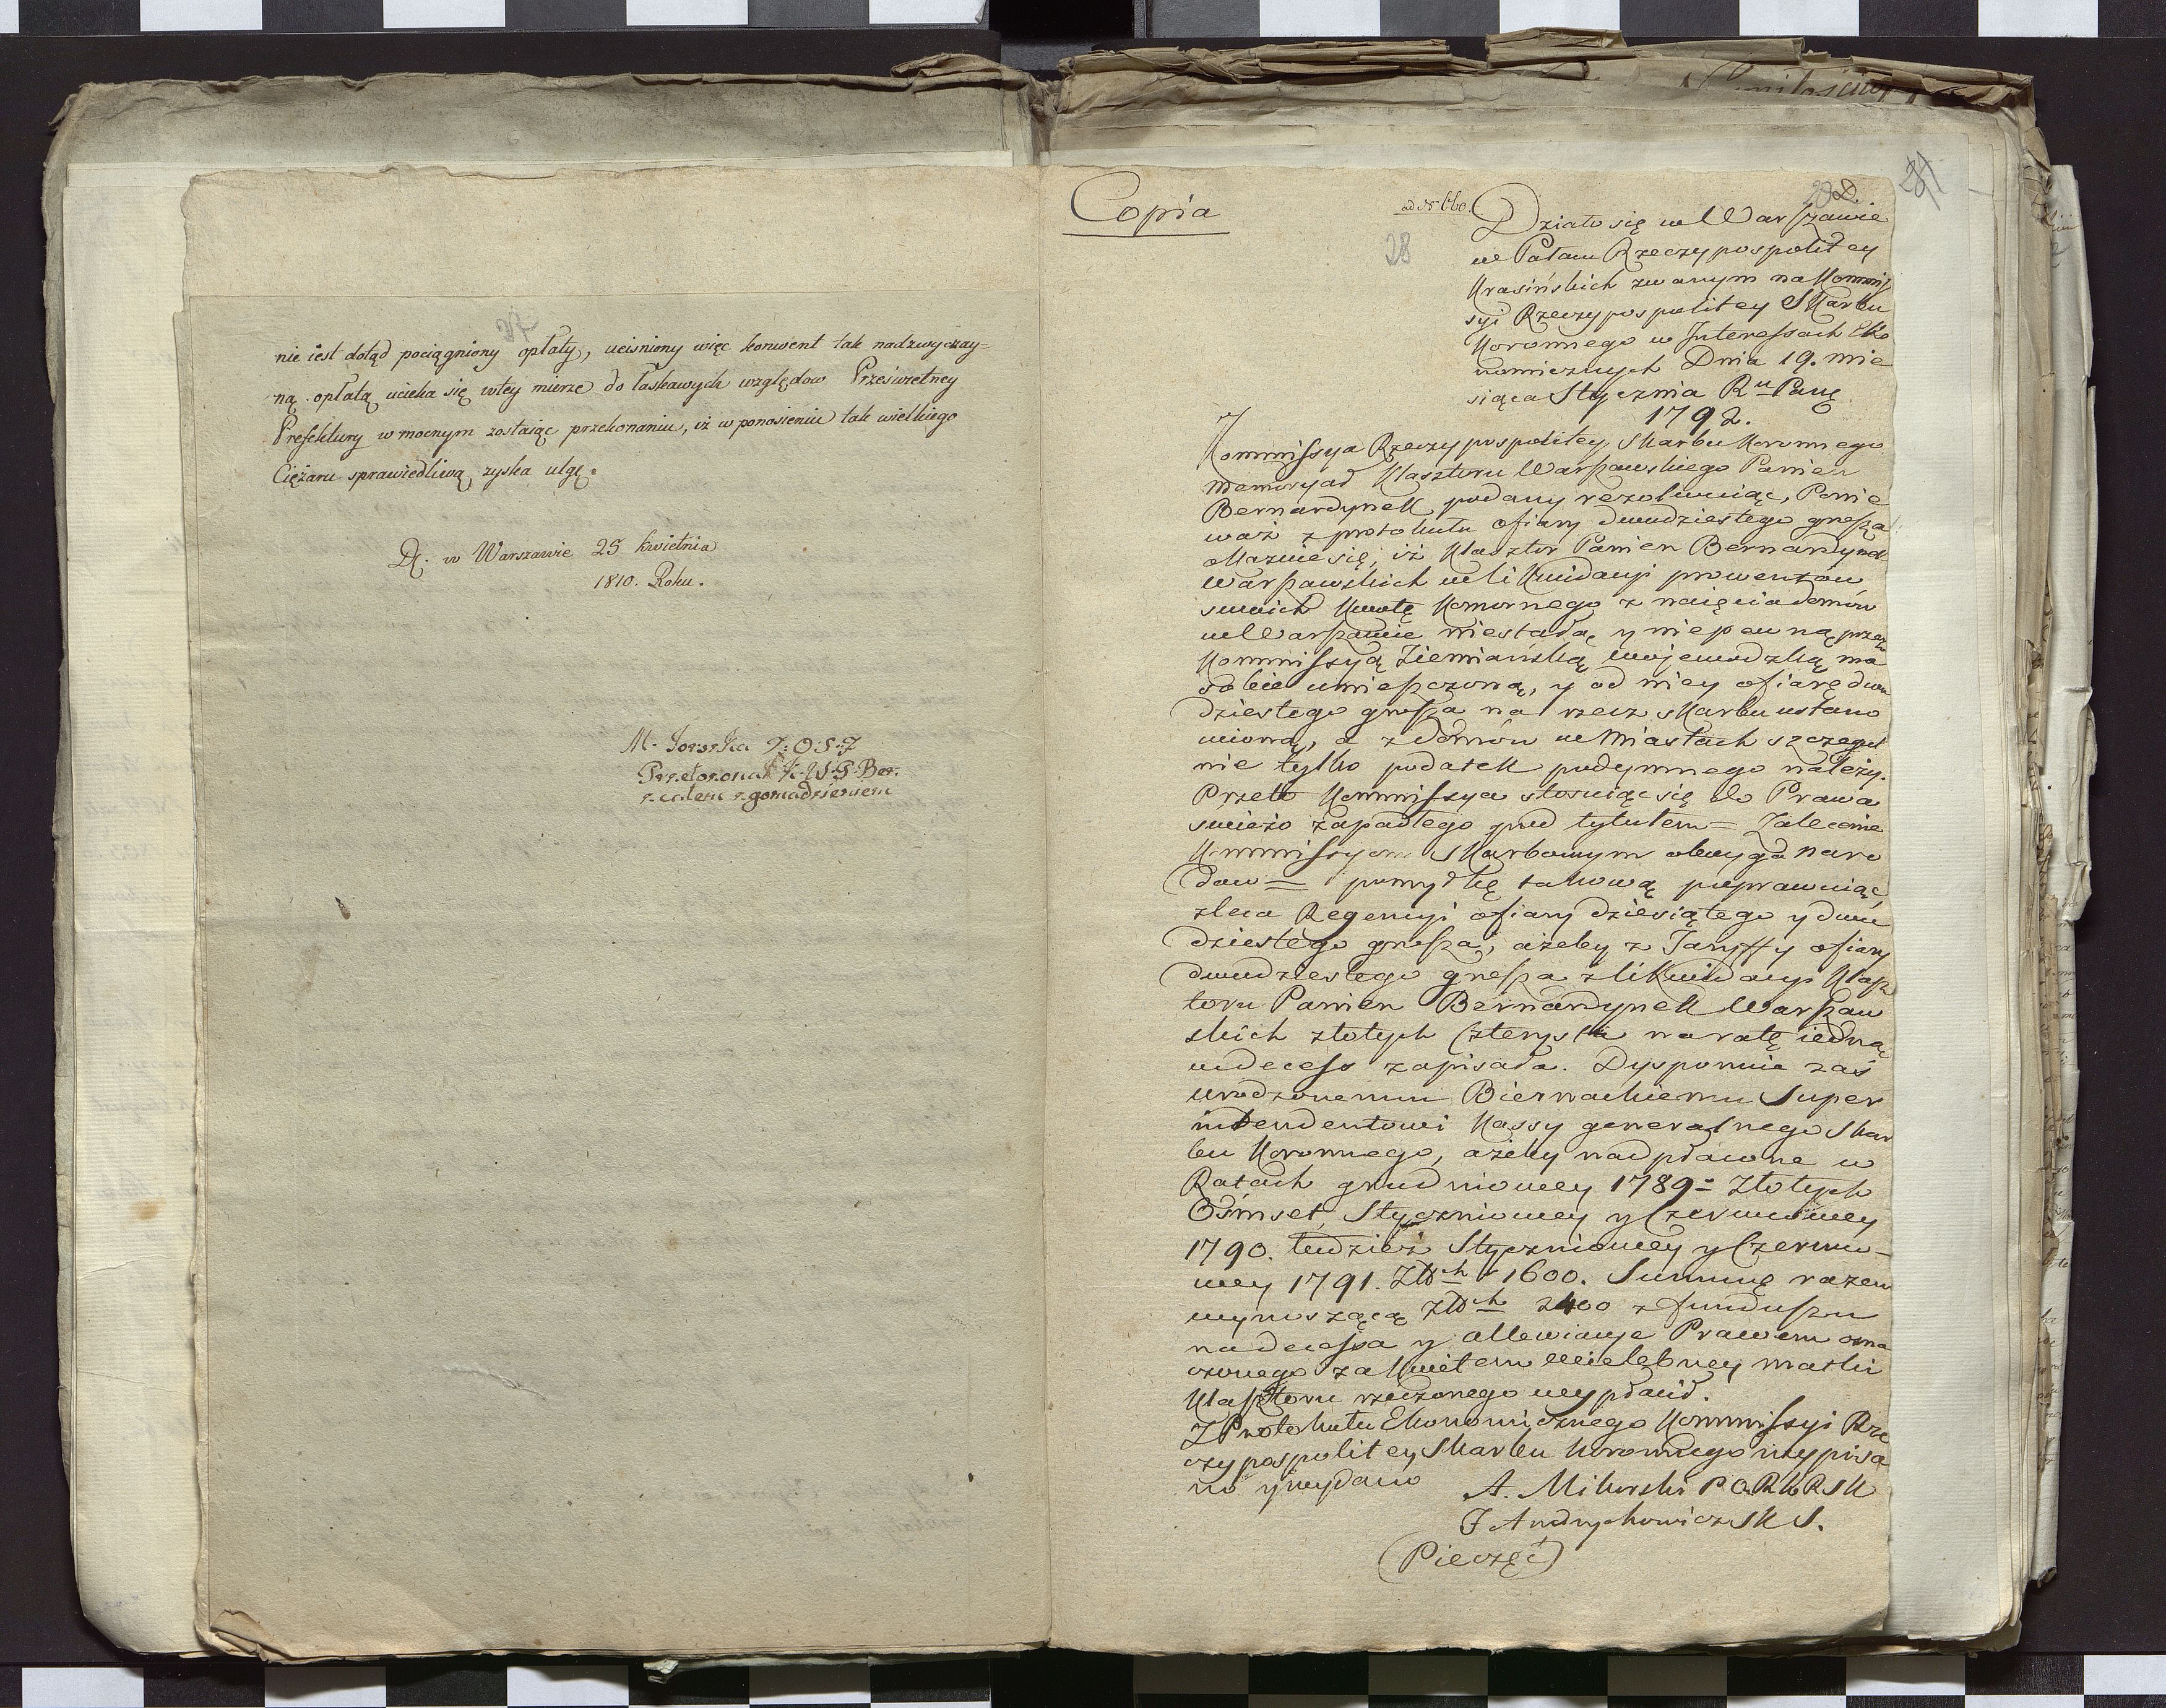 nie iest dotąd pociągniony opłaty, uciśniony więc konwent tak nadzwyczay=
ną opłatą ucieka się wtey mierze do łaskawych względow Prześwietney
Prefektury w mocnym zostaiąc przekonaniu, iż w ponoszeniu tak wielkiego
Ciężaru sprawiedliwą zyska ulgę.
D. w Warszawie 25 kwietnia
1810. Roku.
Przełozona
z całem zgomadzeniem
Copia
ad N 660.
28
Działo się w Warszawie
w Pałacu Rzeczypospolitey
Krasińskich zwanym na Kommis
syi Rzeczypospolitey Skarbu
Koronnego w Interessach Eko
nomicznych Dnia 19. mie
siąca Stycznia Ru Pańs
1792.
Kommissya Rzeczypospolitey Skarbu Koronnego
memoryał Klasztoru Warszawskiego Panien
Bernardynek podany rezolwuiąc, Ponie
waż z protokułu ofiary dwudziestego grosza
okazuie się, iż Klasztor Panien Bernardynek
Warszawskich w likwidacyi prowentów
swoich kwotę komornego z naięcia domów
w Warszawie niestałą y niepewną przez
Kommissyą Ziemiańską Wojewodzką ma
sobie umieszczoną, y od niey ofiarę dwu
dziestego grosza na rzecz skarbu ustano
wioną, a z domów w Miastach szczegul
nie tylko podatek podymnego należy.
Przeto Kommissya stosuiąc się do Prawa
swieżo zapadłego pod tytułem = Zalecenie
Kommissyom Skarbowym oboyga naro
dow = pomyłkę takową poprawuiąc
zleca Regencyi ofiary dziesiątego y dwu
dziestego grosza, ażeby z Taryffy ofiary
dwudziestego grosza z likwidacyi Klasz
toru Panien Bernardynek Warszaw
skich złotych czterysta na ratę iedną
w decess zapisała. Dysponuie zaś
urodzonemu Biernackiemu Super
intendentowi Kassy generalnego Skar
bu Koronnego, ażeby nadpłacone w
Ratach grudniowey 1789= Złotych
Ośmset, Styczniowey y Czerwcowey
1790. tudzież Styczniowey y Czerwco-
wey 1791. Złłch 1600. Summę razem
wynoszącą Złłch 2400 z funduszu
na decessa y allewiacye Prawem ozna
czonego za kwitem Wielebney matki
Klasztoru rzeczonego wypłacił.
Z Protokułu Ekonomicznego Kommissyi Rze
czypospolitey Skarbu Koronnego wypisa
no y wydano A. Mikorski P C R K R S K
J Andrychowicz S K S.
(Pieczęć)